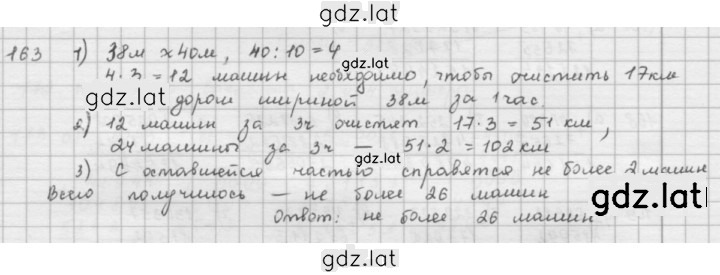 gdz.lat
163 1) 38м x 40м, 40:10=4
4·3=12 машин необходимо, чтобы очистить 17км
gdz.lat дорог шириной 38м за 1час.
2) 12 машин за 3ч очистят 17·3=51 км,
24 машины за 3ч — 51·2=102км
3) С оставшейся частью справятся не более 2 машин
Всего получилось — не более 26 машин
gdz.lat
Ответ: не более 26 машин
gdz.lat
gdz.lat